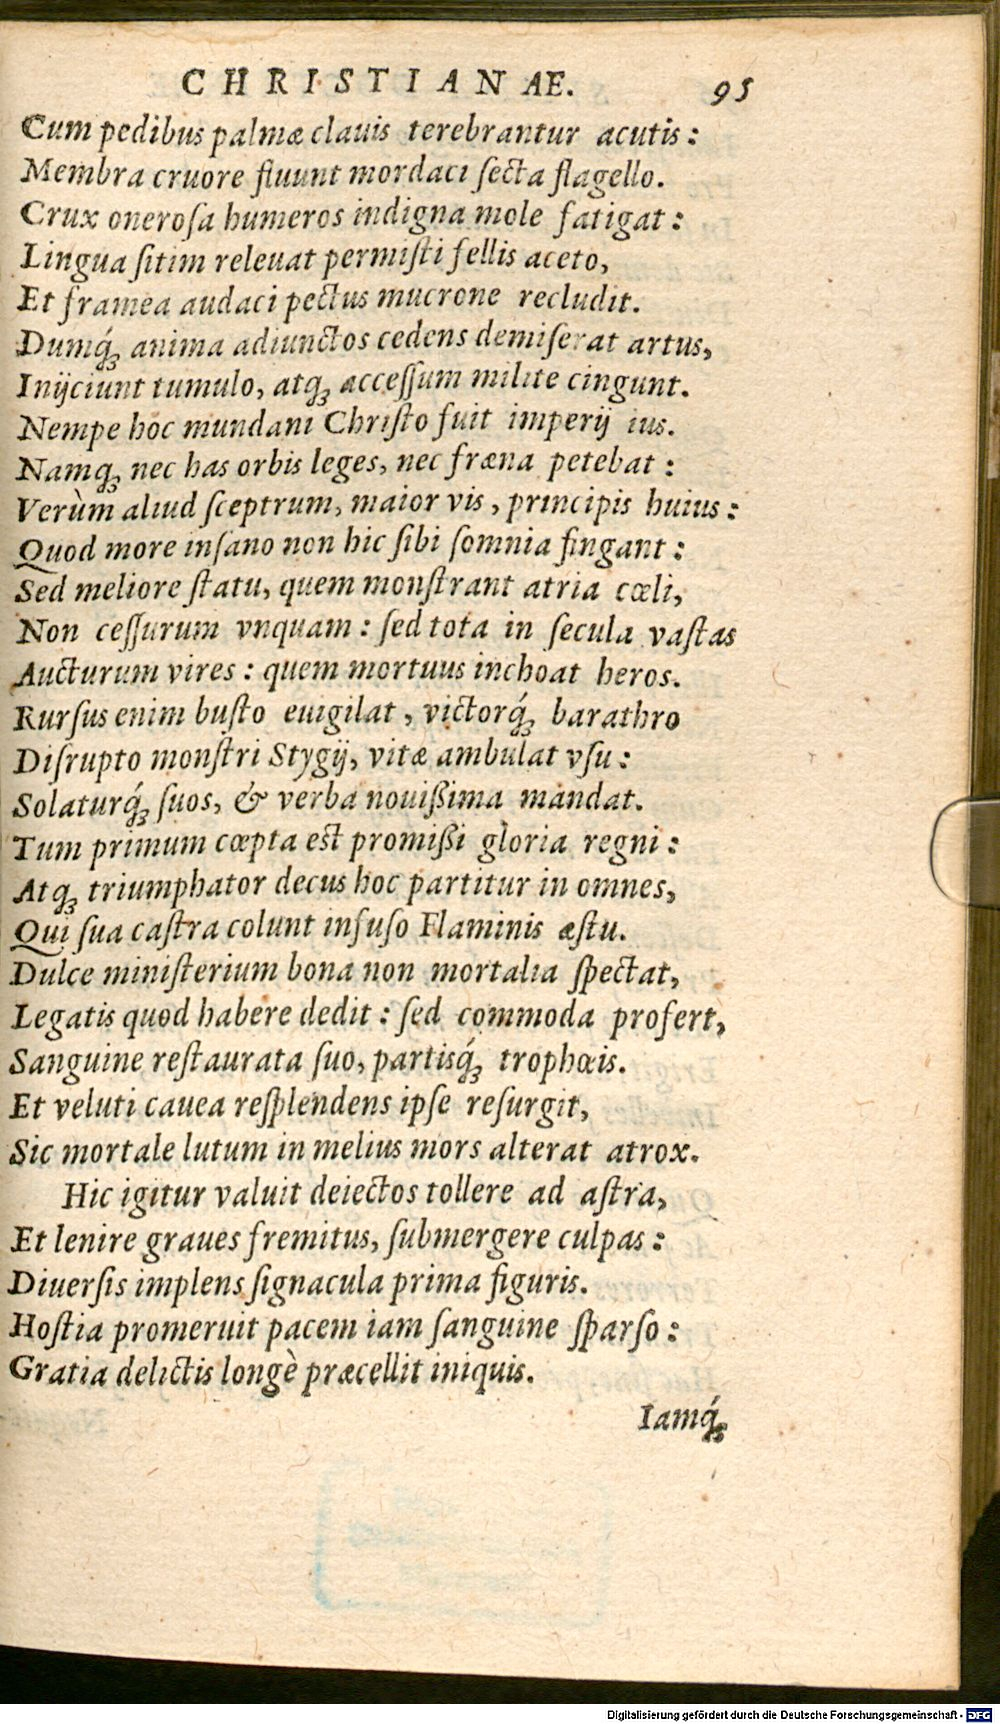 CHRISTIANAE. 95
Cum pedibus palmæ clauis terebrantur acutis:
Membra cruore fluunt mordaci ſecta flagello.
Crux oneroſa humeros indigna mole fatigat:
Lingua ſitim releuat permiſti fellis aceto,
Et framea audaci pectus mucrone recludit.
Dumq́ꝫ anima adiunctos cedens demiſerat artus,
Inijciunt tumulo, atqꝫ acceſſum milite cingunt.
Nempe hoc mundani Chriſto fuit imperij ius.
Namqꝫ nec has orbis leges, nec fræna petebat:
Verùm aliud ſceptrum, maior vis, principis huius:
Quod more inſano non hic ſibi ſomnia fingant:
Sed meliore ſtatu, quem monſtrant atria cœli,
Non ceſſurum vnquam: ſed tota in ſecula vaſtas
Aucturum vires: quem mortuus inchoat heros.
Rurſus enim buſto euigilat, victorq́ꝫ barathro
Diſrupto monſtri Stygij, vitæ ambulat vſu:
Solaturq́ꝫ ſuos, & verba nouißima mandat.
Tum primum cœpta eſt promißi gloria regni:
Atqꝫ triumphator decus hoc partitur in omnes,
Qui ſua caſtra colunt infuſo Flaminis æſtu.
Dulce miniſterium bona non mortalia ſpectat,
Legatis quod habere dedit: ſed commoda profert,
Sanguine reſtaurata ſuo, partisq́ꝫ trophœis.
Et veluti cauea reſplendens ipſe reſurgit,
Sic mortale lutum in melius mors alterat atrox.
Hic igitur valuit deiectos tollere ad aſtra,
Et lenire graues fremitus, ſubmergere culpas:
Diuerſis implens ſignacula prima figuris.
Hoſtia promeruit pacem iam ſanguine ſparſo:
Gratia delictis longè præcellit iniquis.
Iamq́ꝫ
Digitalisierung gefördert durch die Deutsche Forschungsgemeinschaft - DFG